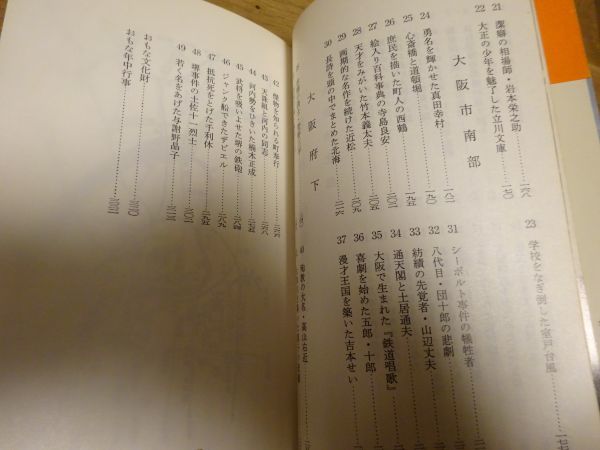 21 潔癖の相場師・岩本栄之助 一六八
22 大正の少年を魅了した立川文庫 一七〇
23 学校をなぎ倒した室戸台風 一七
大阪市南部
24 勇名を輝かせた真田幸村 一八二
25 心斎橋と道頓堀 一九〇
26 庶民を描いた町人の西鶴 一九五
27 絵入り百科事典の寺島良安 二〇五
28 天才をみがいた竹本義太夫 二〇九
29 画期的な名作を続けた近松
30 長詩を頭の中でまとめた北海 二一六
31 シーボルト事件の犠牲者
32 八代目・団十郎の悲劇
33 紡績の先覚者・山辺丈夫
34 通天閣と土居通夫
35 大阪で生まれた『鉄道唱歌』
36 喜劇を始めた五郎・十郎
37 漫才王国を築いた吉本せい
大阪府下
40 大名・高山右近
42 怪物と知られる町奉行
43 天誅組と河内の同志
44 河内勢をひきいた楠木正成
45 武将を吸いよせた堺の鉄砲
46 ジャンク船できたザビエル
47 抵抗死をとげた千利休
48 堺事件の土佐十一烈士
49 若く名をあげた与謝野晶子
おもな文化財
おもな年中行事